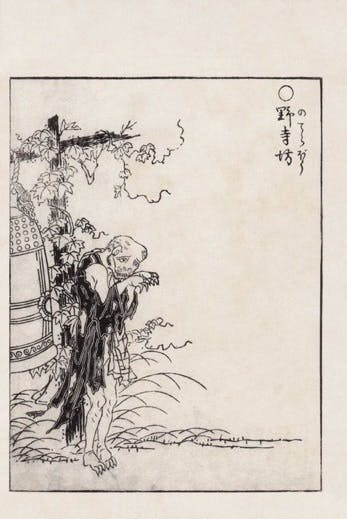 ○野寺坊
のでらぼう